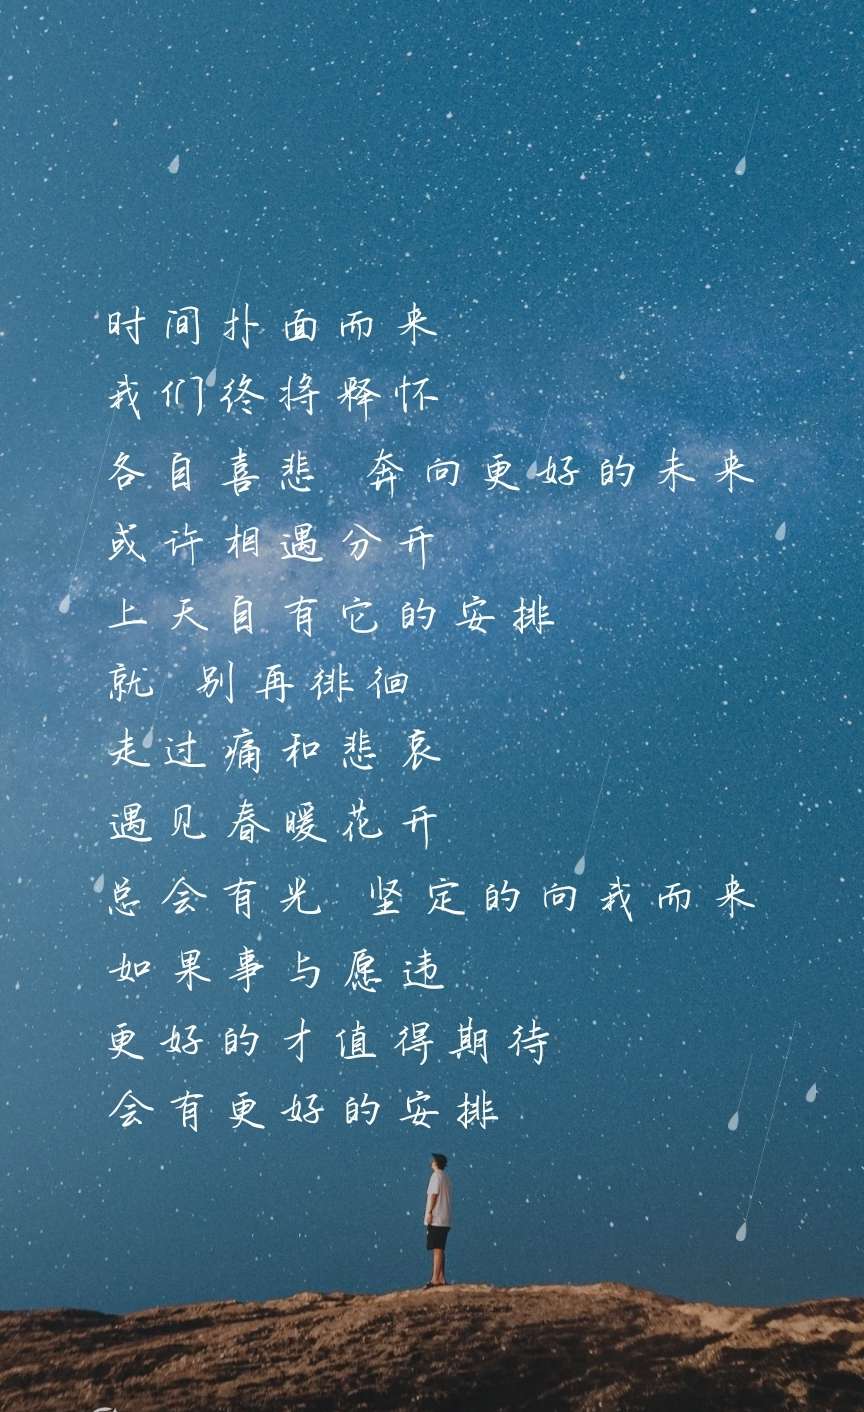 时间扑面而来
我们终将释怀
各自喜悲 奔向更好的未来
或许相遇分开
上天自有它的安排
就 别再徘徊
走过痛和悲哀
遇见春暖花开
总会有光 坚定的向我而来
如果事与愿违
更好的才值得期待
会有更好的安排